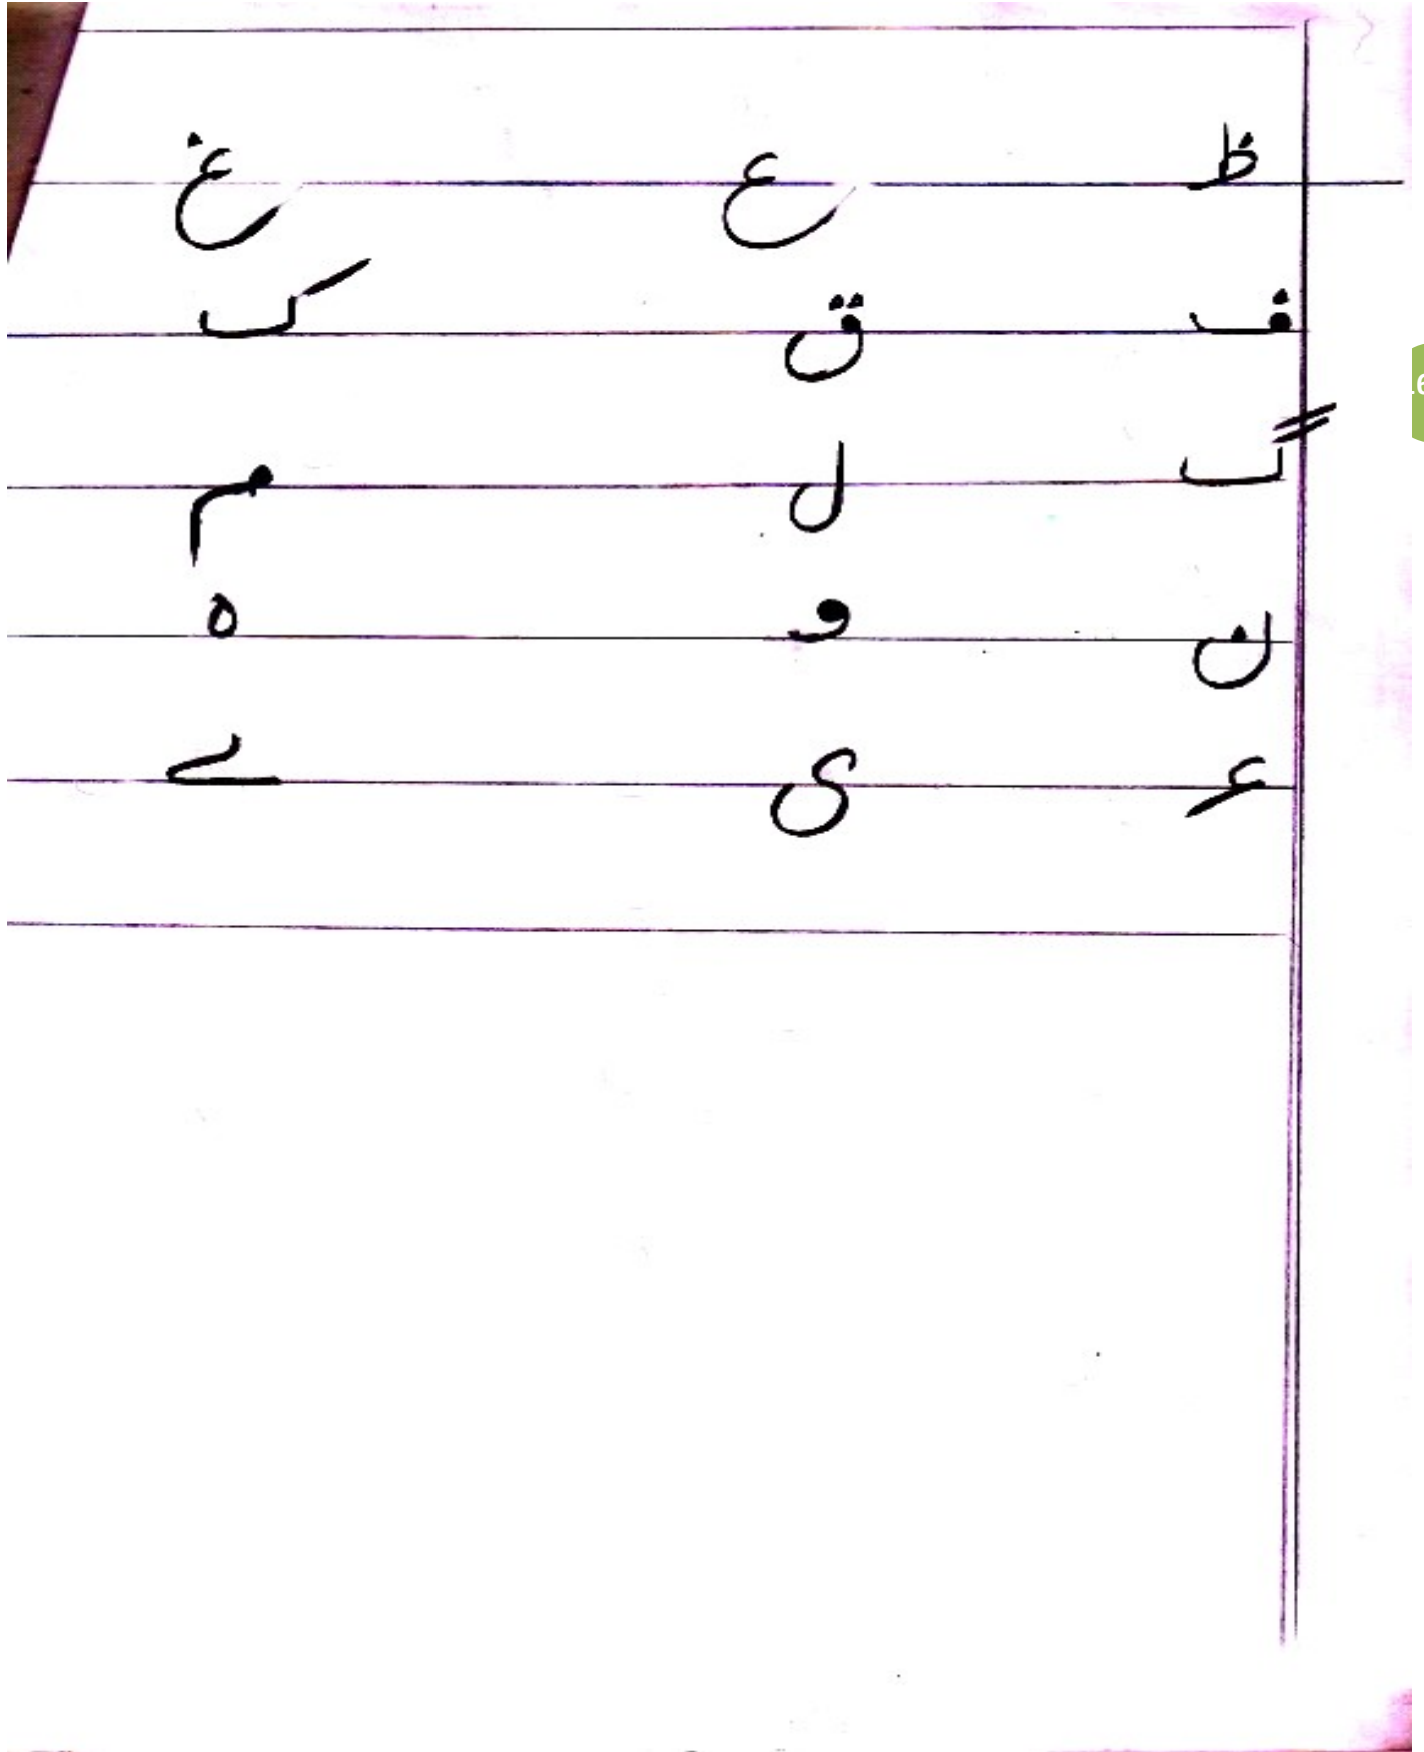 ظ ع غ
ف ق ک
گ ل م
ن و ہ
ء ی ے